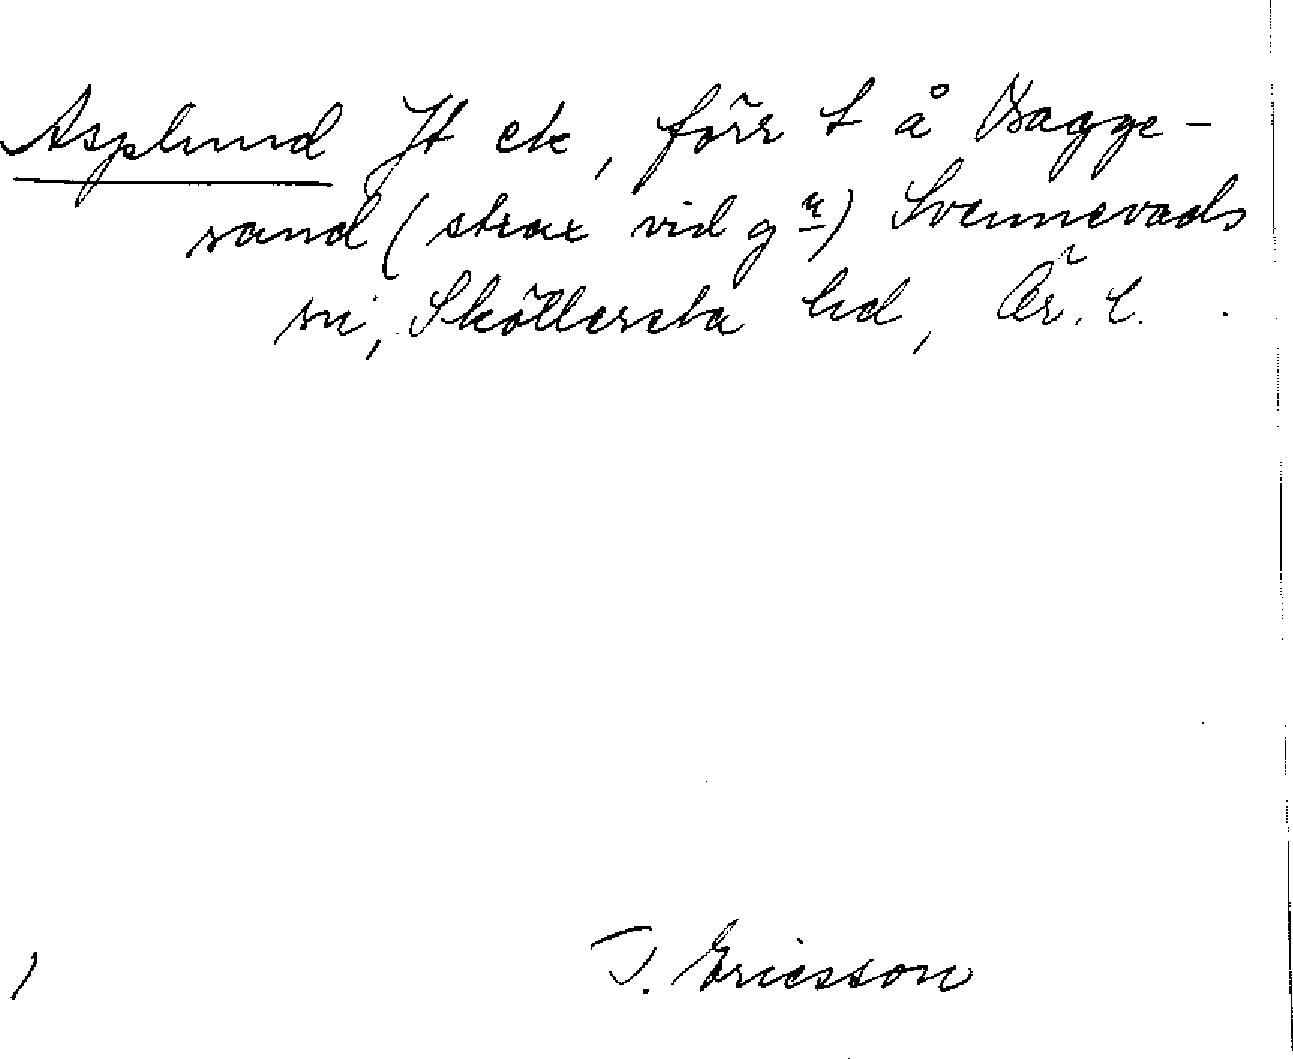 Asplund Jt ek, förr t å Bagge-
sand (strax vid gn) Svennevads
sn, Sköllersta hd, Ör. l.
T. Ericsson